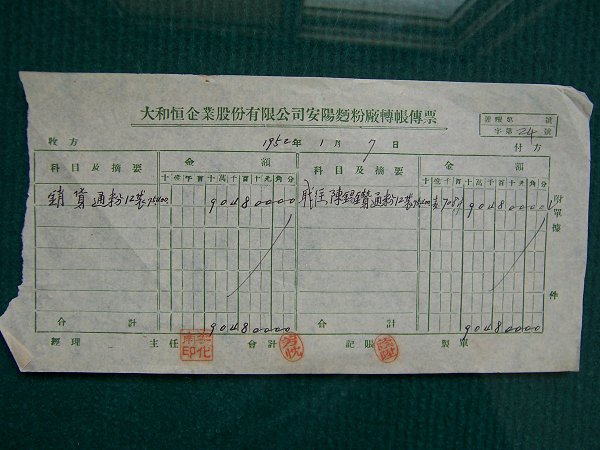 大和恒企業股份有限公司安陽麵粉廠轉帳傳票
普轉第 號
字第 24 號
收方 1952年 1月 7日 付方
科目及摘要 金額 科目及摘要 金額
十億千百十萬千百十元角分 十億千百十萬千百十元角分
銷貨 通粉12袋 75400 90480000 陳錫鑽 通粉12袋 75400 90480000
附單據 件
合計 90480000 合計 90480000
經理 主任 會計 記賬 製單